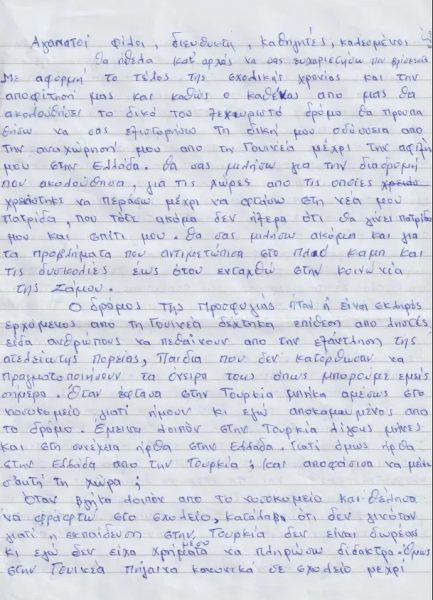 Αγαπητοί φίλοι, διευθυντή, καθηγητές, καλεσμένοι
θα ήθελα κατ' αρχάς να σας ευχαριστήσω που βρίσκεστε
Με αφορμή το τέλος της σχολικής χρονίας και την
αποφίτησή μας και καθώς ο καθένας απο μας θα
ακολουθήσει το δικό του ξεχωριστό δρόμο θα προσπα
θήσω να σας εξιστορήσω τη δική μου οδύσσεια απο
την αναχώρησή μου απο την Γουινέα μέχρι την αφιξη
μου στην Ελλάδα. θα σας μιλήσω για την διαδρομή
που ακολούθησα, για τις χώρες απο τις οποίες
χρειάστηκε να περάσω μέχρι να φτάσω στη νέα μου
πατρίδα, που τότε ακόμα δεν ήξερα ότι θα γίνει πατρίδα
μου και σπίτι μου. θα σας μιλήσω ακόμα και για
τα προβλήματα που αντιμετώπισα στο καμπ και
τις δυσκολίες έως ότου ενταχθώ στην κοινωνία
της Σάμου.
Ο δρόμος της Προσφυγιάς ήταν ή είναι σκληρός
ερχόμενος απο τη Γουινέα δέχτηκα επίθεση απο ληστές
είδα ανθρώπους να πεθαίνουν απο την εξάντληση της
ατελείωτης πορείας, Παιδιά που δεν κατόρθωσαν να
πραγματοποιήσουν τα όνειρα τους όπως μπορούμε εμείς
σήμερα. Όταν έφτασα στην Τουρκία μπήκα αμέσως στο
νοσοκομείο γιατί ήμουν κι εγώ αποκαμωμένος απο
το δρόμο. Έμεινα λοιπόν στην Τουρκία λίγους μήνες
και στη συνέχεια ήρθα στην Ελλάδα. Γιατί όμως ήρθα
στην Ελλάδα απο την Τουρκία; και αποφάσισα να μείνω
σ'αυτή τη χώρα;
Όταν βγήκα λοιπόν απο το νοσοκομείο και θέλησα
να γραφτώ στο σχολείο, κατάλαβα ότι δεν γινόταν
γιατί η εκπαίδευση στην Τουρκία δεν είναι δωρεάν
κι εγώ δεν είχα χρήματα να πληρώσω δίδακτρα. Όμως
στην Γουινέα πήγαινα κανονικά σε σχολείο μέχρι